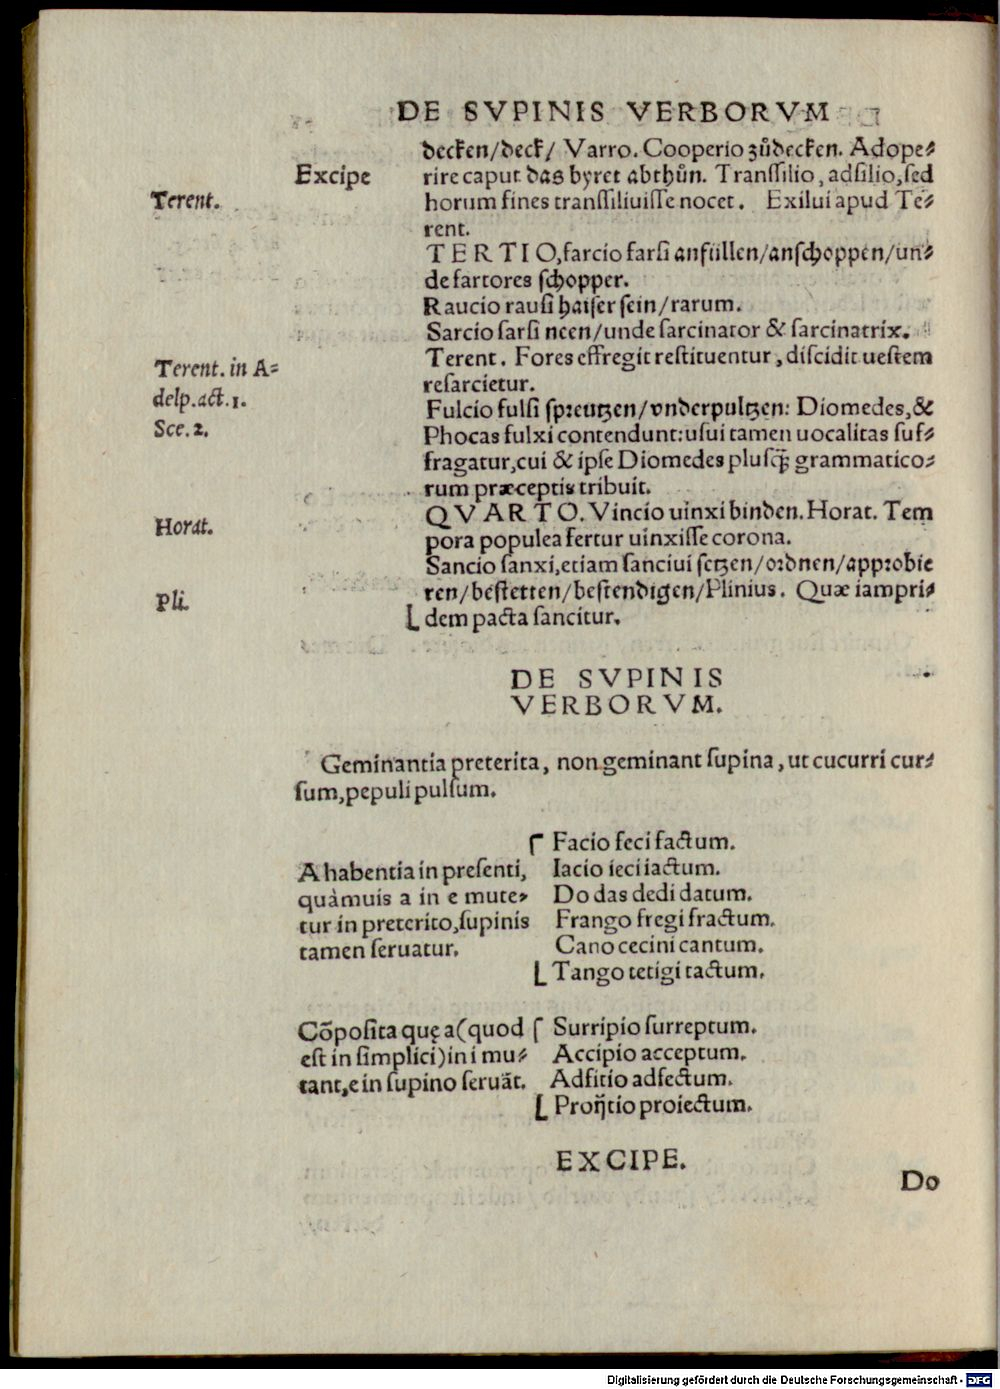 DE SVPINIS VERBORVM
decken/deck/ Varro. Cooperio zůdecken. Adope⸗
Excipe
rire caput das byret abthůn. Transſilio, adſilio, ſed
Terent.
horum fines transſiliuiſſe nocet. Exilui apud Te⸗
rent.
TERTIO, farcio farſi anfüllen/anſchoppen/un⸗
de fartores ſchopper.
Raucio rauſi haiſer ſein/rarum.
Sarcio ſarſi neen/unde ſarcinator & ſarcinatrix.
Terent. in A⸗
delp. act. 1.
Sce. 2.
Terent. Fores effregit reſtituentur, diſcidit ueſtem
reſarcietur.
Fulcio fulſi ſpreutzen/vnderpultzen: Diomedes, &
Phocas fulxi contendunt: uſui tamen uocalitas ſuf⸗
fragatur, cui & ipſe Diomedes pluſq̃ grammatico⸗
rum præceptis tribuit.
Horat.
QVARTO. Vincio uinxi binden. Horat. Tem
pora populea fertur uinxiſſe corona.
Sancio ſanxi, etiam ſanciui ſetzen/ordnen/approbie
Pli.
ren/beſtetten/beſtendigen/Plinius. Quæ iampri⸗
dem pacta ſancitur.
DE SVPINIS
VERBORVM.
Geminantia preterita, non geminant ſupina, ut cucurri cur⸗
ſum, pepuli pulſum.
A habentia in preſenti,
quàmuis a in e mute⸗
tur in preterito, ſupinis
tamen ſeruatur.
Facio feci factum.
Iacio ieci iactum.
Do das dedi datum.
Frango fregi fractum.
Cano cecini cantum.
Tango tetigi tactum.
Cõpoſita quę a (quod
eſt in ſimplici) in i mu⸗
tant, e in ſupino ſeruãt.
Surripio ſurreptum.
Accipio acceptum.
Adficio adfectum.
Proijcio proiectum.
EXCIPE.
Do
Digitalisierung gefördert durch die Deutsche Forschungsgemeinschaft - DFG